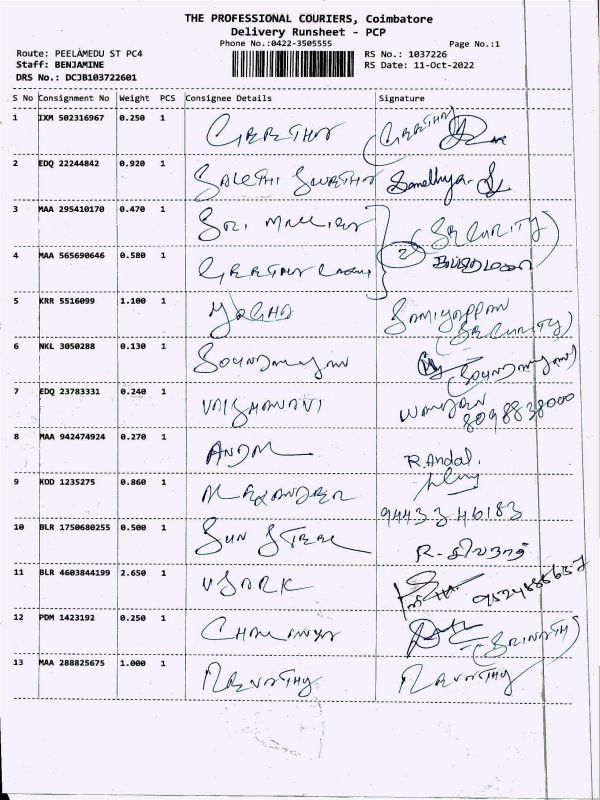 THE PROFESSIONAL COURIERS, Coimbatore
Delivery Runsheet - PCP
Phone No.:0422-3505555 Page No.:1
Route: PEELAMEDU ST PC4 RS No.: 1037226
Staff: BENJAMINE RS Date: 11-Oct-2022
DRS No.: DCJB103722601
S No Consignment No Weight PCS Consignee Details Signature
1 IXM 502316967 0.250 1
2 EDQ 22244842 0.920 1 Sandhya.
3 MAA 295410170 0.470 1 (SECURITY)
4 MAA 565690646 0.580 1 2
5 KRR 5516099 1.100 1 SAMIYAPPAN
(SECURITY)
6 NKL 3050288 0.130 1
7 EDQ 23783331 0.240 1 VAISHANAVI
8098838000
8 MAA 942474924 0.270 1 R. Andal.
9 KOD 1235275 0.860 1 ALEXANDER
94433 46183
10 BLR 1750680255 0.500 1 SUN STEEL
11 BLR 4603844199 2.650 1
12 PDM 1423192 0.250 1 (SRINATH)
13 MAA 288825675 1.000 1 REVATHY REVATHY